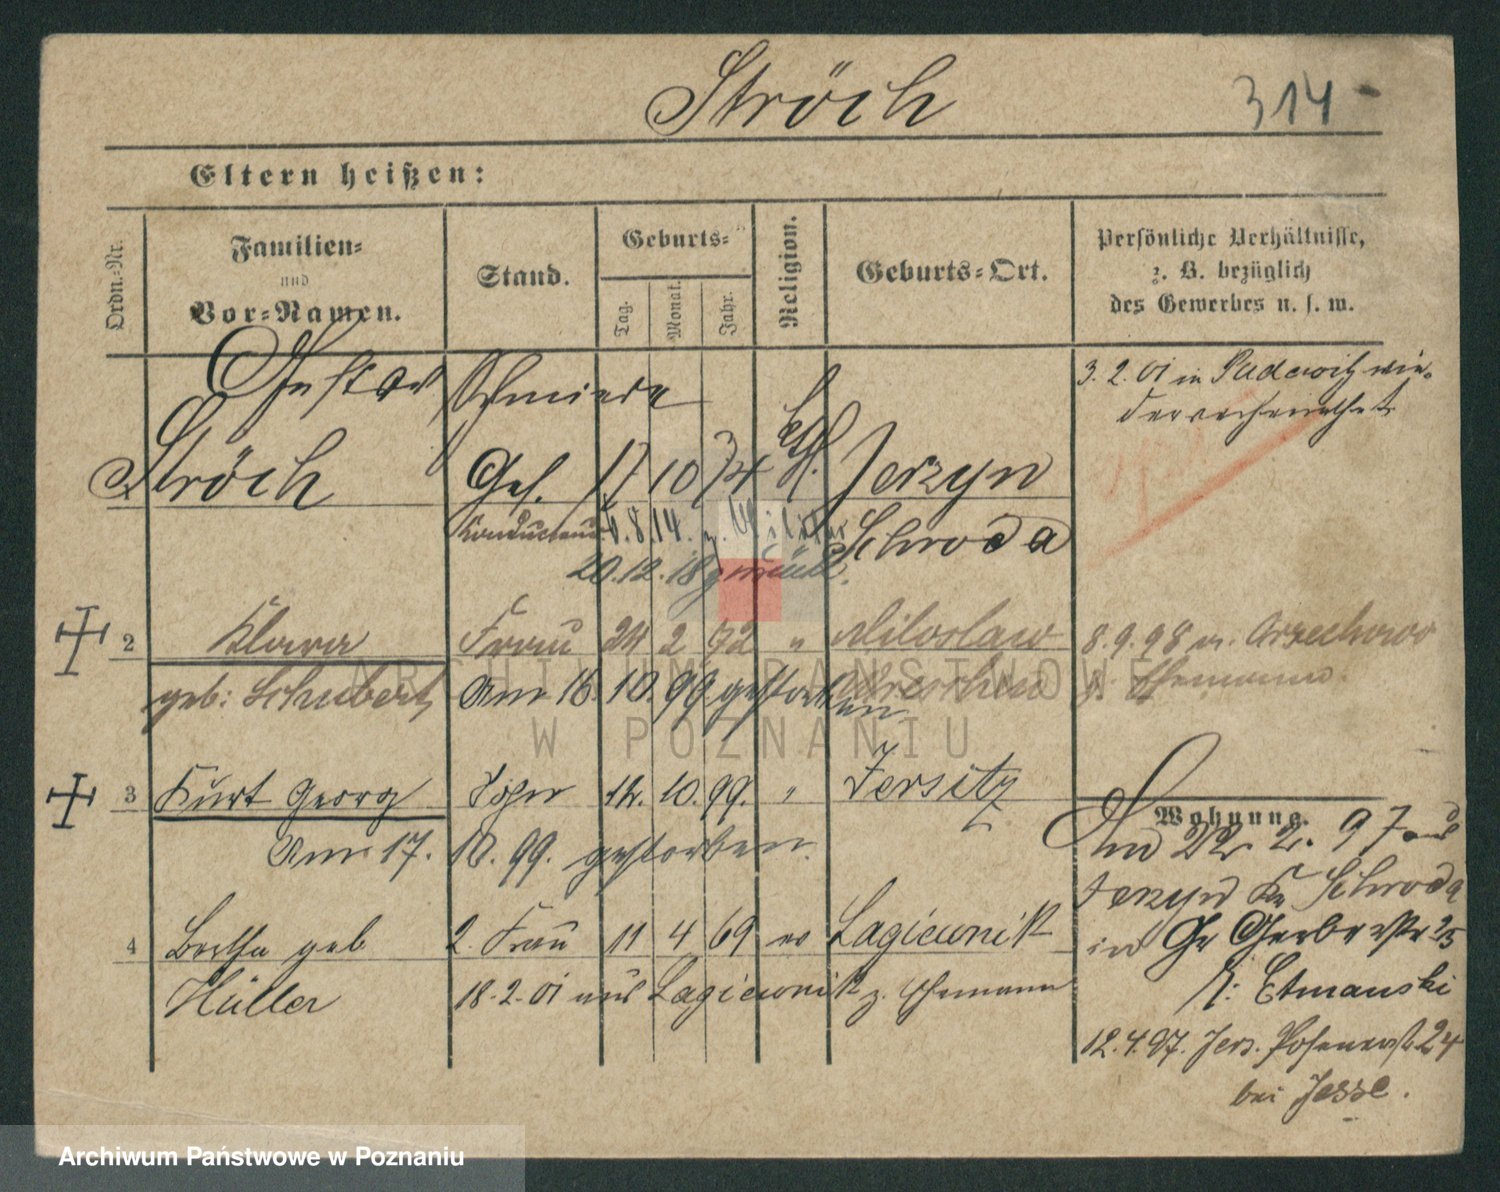 Ströch 314
Eltern heißen:
Ordn.-Nr.
Familien-
und
Vor-Namen.
Stand.
Geburts-
Tag. Monat. Jahr.
Religion.
Geburts-Ort.
Persönliche Verhältnisse,
z. B. bezüglich
des Gewerbes u. s. w.
Gustav Schmiede 3. 2. 01 in Pudewitz wie-
derverheirathet
Ströch Ges. 17 10 74 Jerzyn
Konducteur 6.8.14. z. Militär Schroda
20.12.18 zurück.
2 Klara Frau 24 2 72 " Miloslaw 8.9.98 v.
geb: Schubert Am 16. 10. 99 gestorben Wreschen z. Ehemann.
3 Kurt Georg Sohn 12. 10. 99. " Jersitz
Am 17. 10. 99. gestorben.
Wohnung.
Am 22. 2. 97 aus
Jerzyn Kr Schroda
in Gr Gerberstr 25
b: Etmanski
12.4.97. Jers. Posenerst. 24
bei Jesse.
4 Bertha geb 2. Frau 11 4 69 ev Lagiewnik
Müller 18.2.01 aus Lagiewnik z. Ehemann
ARCHIWUM PAŃSTWOWE
W POZNANIU
Archiwum Państwowe w Poznaniu